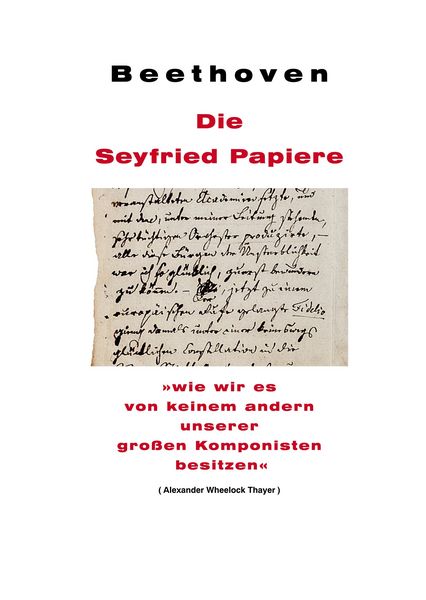 Beethoven
Die
Seyfried Papiere
veranstalteten Academien setzte, und
mit das, unter meiner Leitung stehende,
Orchester produzirte, –
alle diese der Unsterblichkeit
war ich so glücklich, zuerst bewundern
zu können. – Der, jetzt zu einem
europäischen Rufe gelangte Fidelio
gieng damals unter einer
glücklichen Constellation in die
»wie wir es
von keinem andern
unserer
großen Komponisten
besitzen«
( Alexander Wheelock Thayer )